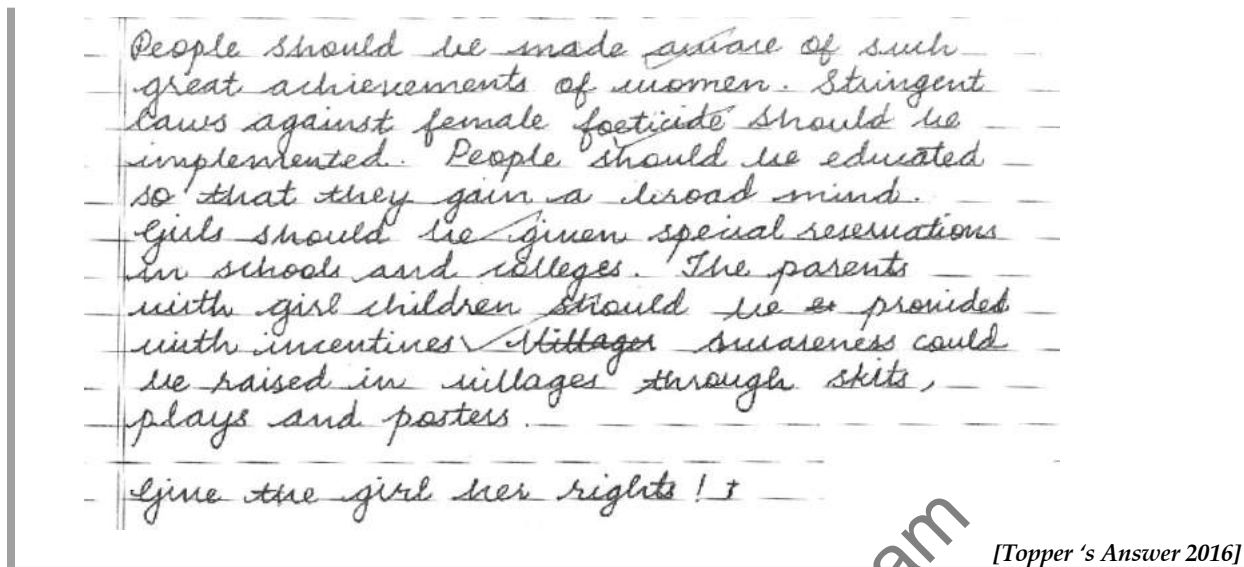 People should be made aware of such
great achievements of women. Stringent
laws against female foeticide should be
implemented. People should be educated
so that they gain a broad mind.
Girls should be given special reservations
in schools and colleges. The parents
with girl children should be provided
with incentives. Awareness could
be raised in villages through skits,
plays and posters.
Give the girl her rights!
[Topper 's Answer 2016]